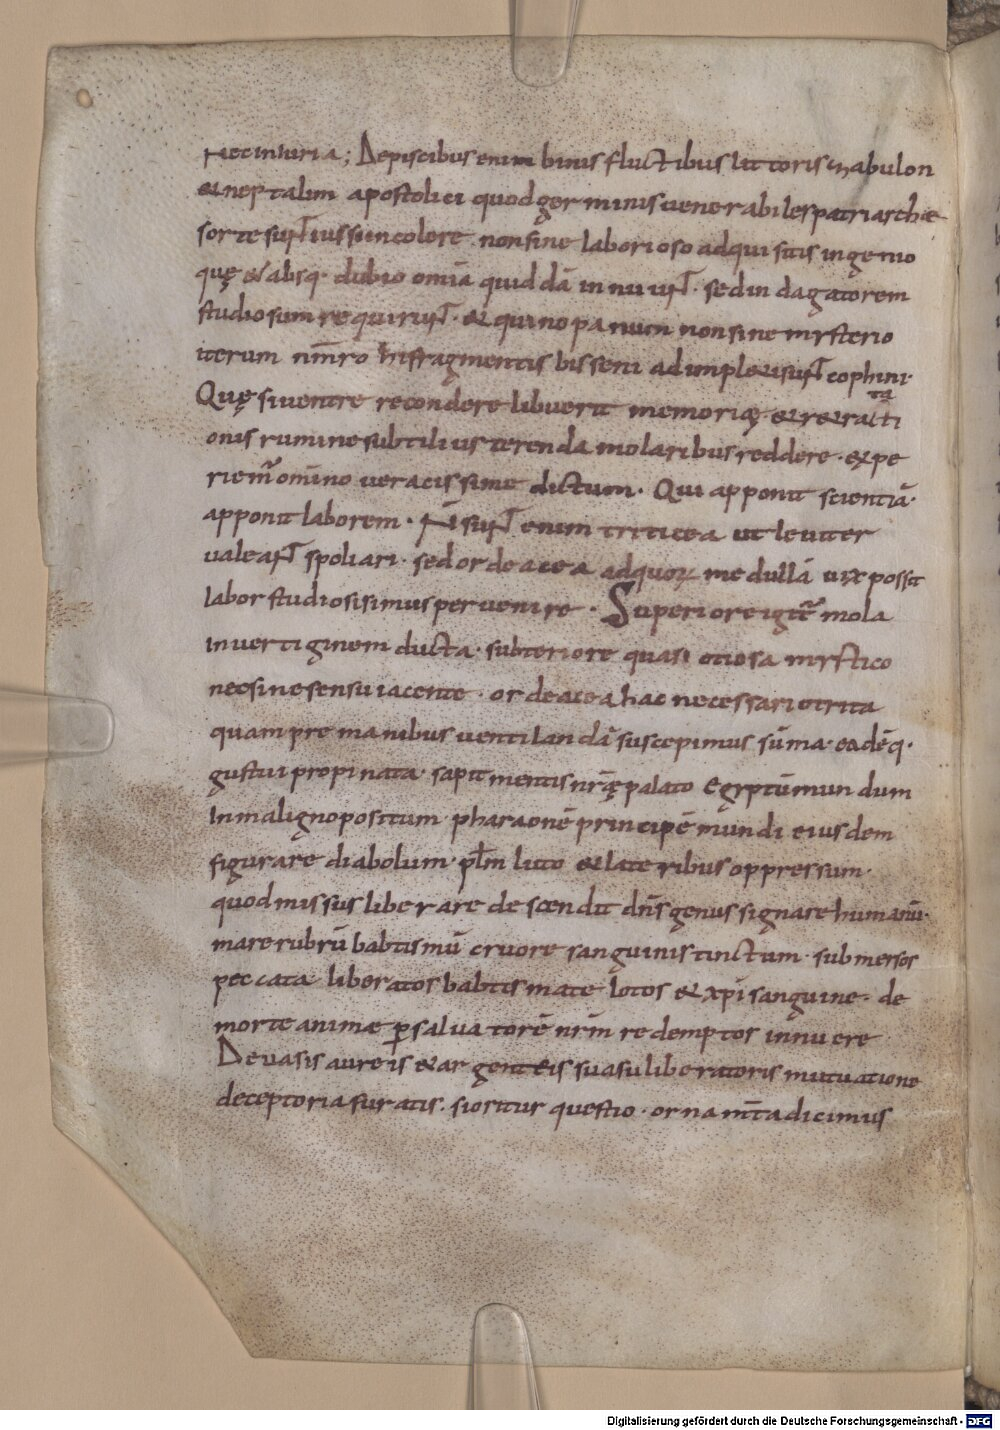 necinIuria; Depiscibus enim binis fluctibus littoris zabulon
&neptalim apostolici quod germinis uenerabiles patriarchie
sorte sunt iussi incolere. non sine laborioso adquisitis ingenio
quę &absq· dubio omīa quiddā innuunt. sed indagatorem
studiosum requirunt. & quino panum non sine mysterio
iterum nūro In fragmentis bisseni adimpl&i sunt cophini·
Quę siuentre recondere libuerit memoriæ. &r&racti
ta
onis rumine subtilius terenda molaribus reddere. expe
riem̄ omīno ueracissime dictum. Qui apponit scientiā·
apponit laborem. N̄ sunt enim triticea ut leuiter
ualeant spoliari. sed ordeacea adquorum medullā uix possit
labor studiosisimus peruenire. Superiore igit̄ mola
inuertiginem ducta. subteriore quasi otiosa mystico
nec sine sensu iacente. ordeacea hac necessario trita
quam pre manibus uentilandā suscepimus sūma. eadēq·
gustui propinata. sapit mentis nr̄ę palato Egyptū mundum
In maligno positum. pharaonē principē mundi eiusdem
figurare diabolum. pl̄m luto & lateribus oppressum.
quod missus liberare descendit dn̄s genus signare humanū.
mare rubrū babtismū cruore sanguinis tinctum. submersos
peccata liberatos babtismate lotos & xp̄i sanguine. de
morte animæ p saluatorē nr̄m redemptos innuere
De uasis aureis & argenteis suasu liberatoris mutuatione
deceptoria furatis. si oritur questio. ornam̄ta dicimus
Digitalisierung gefördert durch die Deutsche Forschungsgemeinschaft - DFG